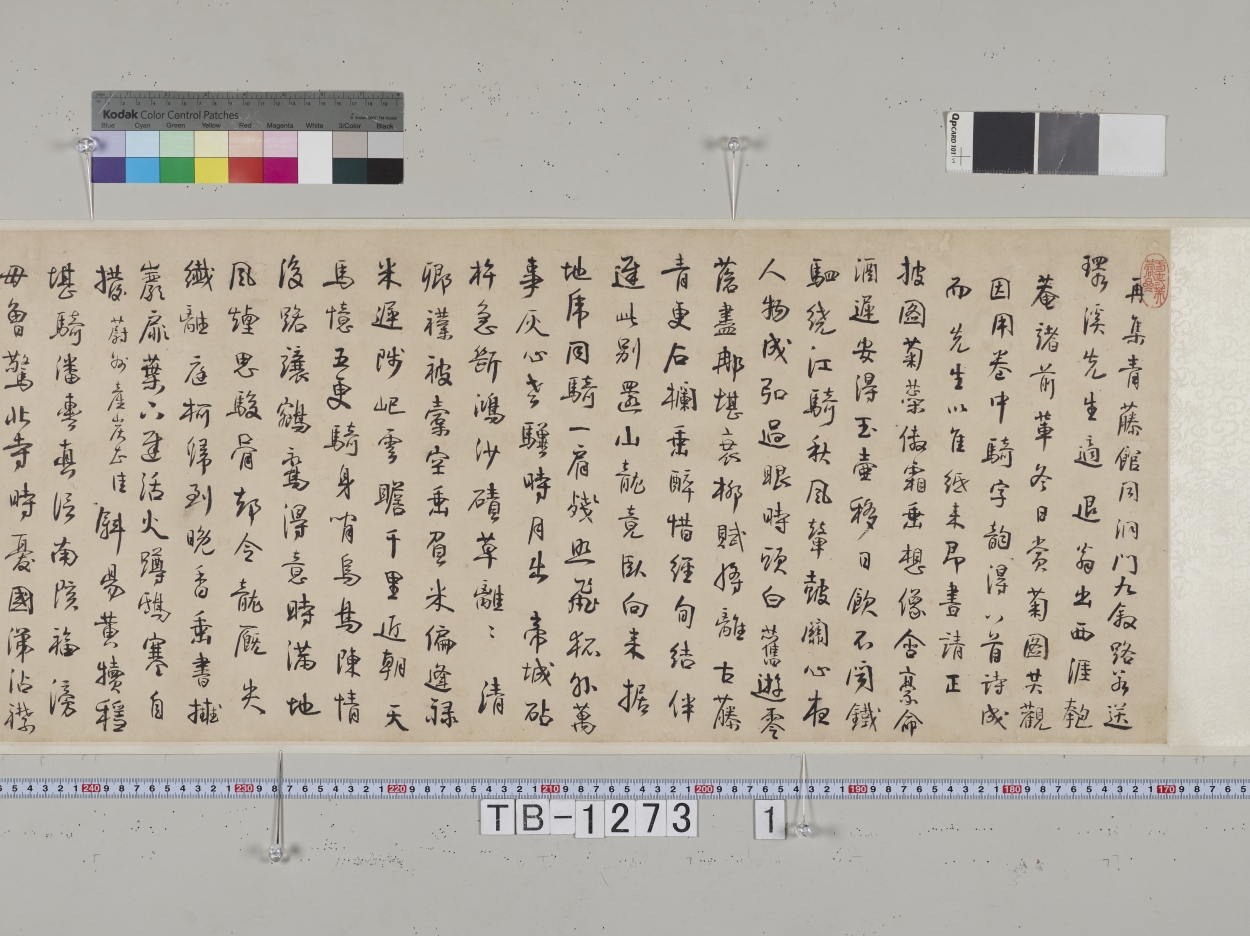 再集青藤館同洞門九敘路若送
瓔溪先生適退翁出西涯匏
菴諸前輩冬日賞菊圖共觀
因用卷中騎字韻得八首詩成
而先生以隹紙來即書請正
披圖菊蘂傲霜垂想像含豪命
酒遲安得玉壺移日飲不聞鐵
馹繞江騎秋風鼙鼓關心夜
人物成弘過眼時頭白舊遊零
落盡那堪衰柳賦將離古藤
青更石欄垂醉惜經旬結伴
遲此別置山龍竟臥向來據
地席同騎一肩殘照飛孤外萬
事灰心老驥時月出帝城砧
杵急斷鴻沙磧草離離清
鄉襆被橐空垂負米偏逢祿
米遲陟屺雲瞻千里近朝天
馬憶五更騎身啃烏鳥陳情
後路讓鵷鸞得意時滿地
風煙思駿骨却令龍厩失
纖離庭柯歸到晚香垂書擁
巖扉葉下遲活火蹲鴟寒自
撥蔚州產炭甚佳斜昜黃犢穩
堪騎潘輿真信南陔福滂
毋魯驚北寺時憂國渾沾襟
Kodak Color Control Patches
Blue Cyan Green Yellow Red Magenta White 3/Color Black
QPCARD 101
240 230 220 210 200 190 180 170
TB-1273 1